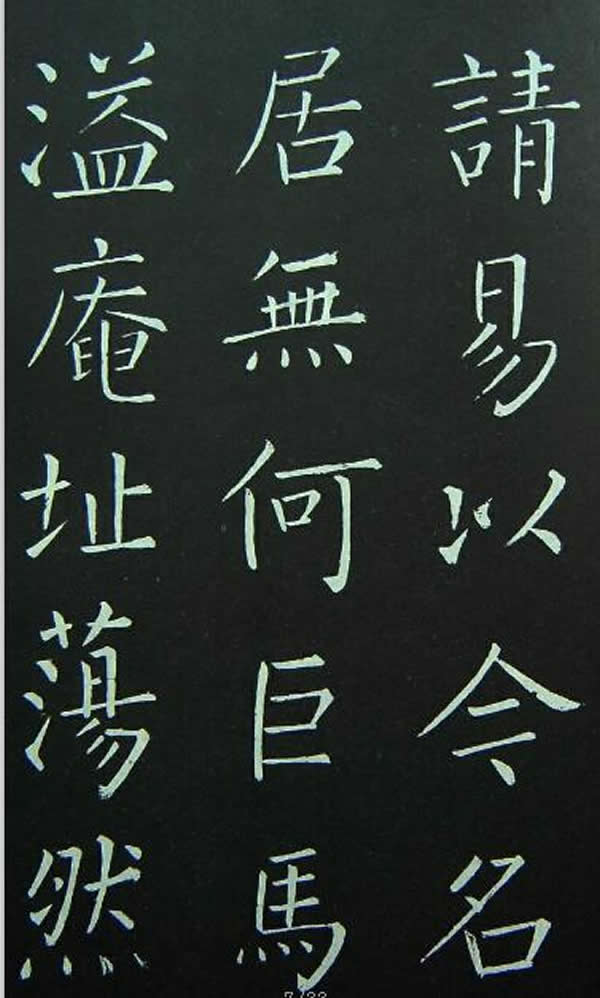 請易以今名
居無何巨馬
溢庵址蕩然
7/33